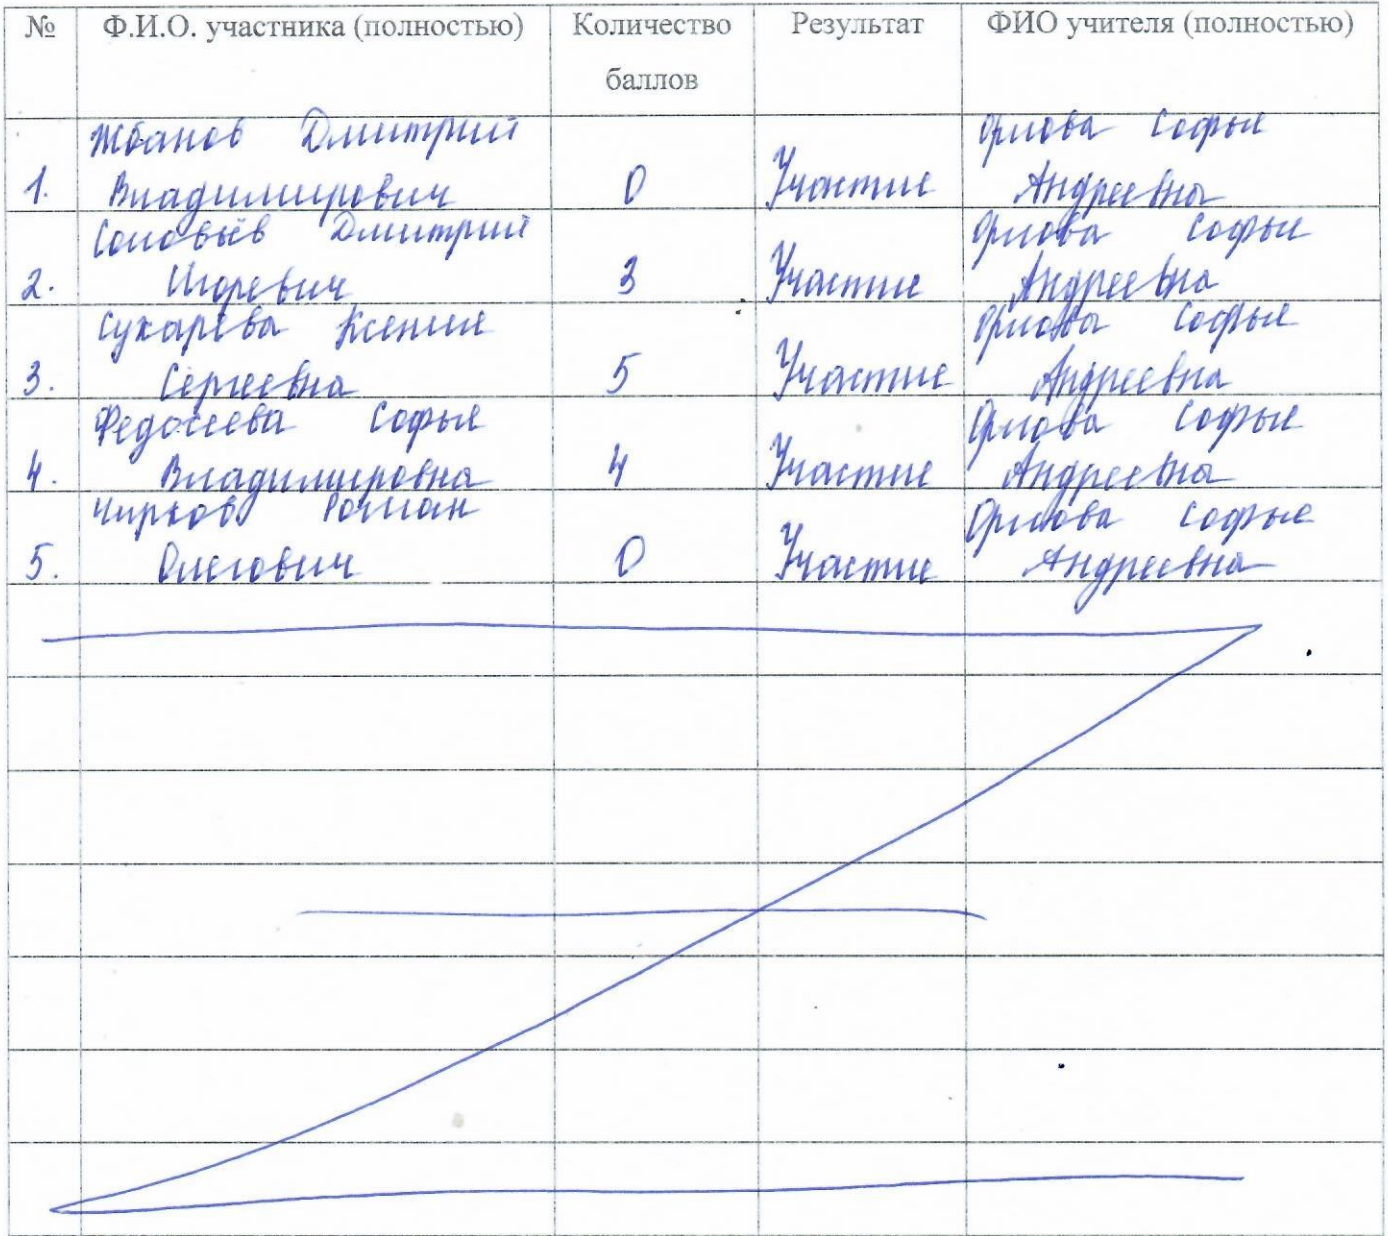 № Ф.И.О. участника (полностью) Количество баллов Результат ФИО учителя (полностью)
1. Жбанов Дмитрий Владимирович 0 Участие Орлова Софья Андреевна
2. Соловьёв Дмитрий Игоревич 3 Участие Орлова Софья Андреевна
3. Сухарева Ксения Сергеевна 5 Участие Орлова Софья Андреевна
4. Федосеева Софья Владимировна 4 Участие Орлова Софья Андреевна
5. Чирков Роман Олегович 0 Участие Орлова Софья Андреевна